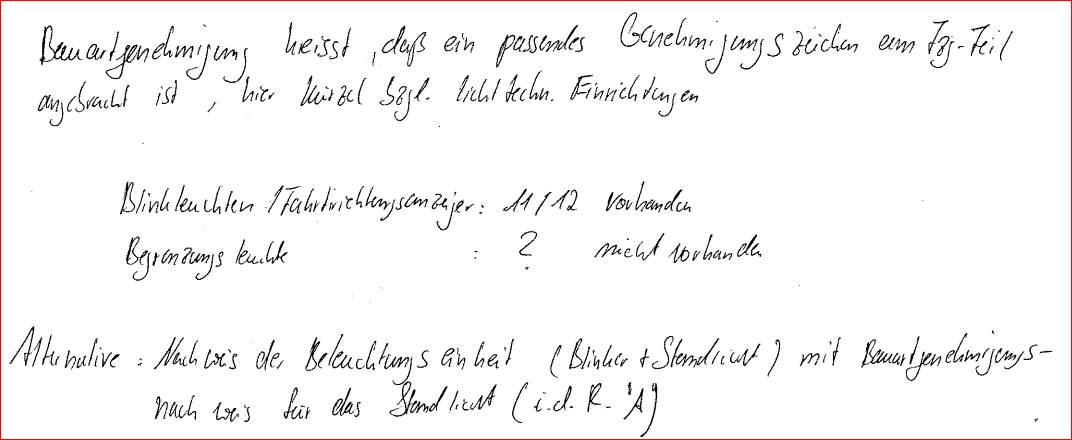 Bauartgenehmigung heisst, daß ein passendes Genehmigungszeichen am Fzg-Teil
angebracht ist, hier Kürzel bzgl. lichttechn. Einrichtungen
Blinkleuchten / Fahrtrichtungsanzeiger: 11/12 vorhanden
Begrenzungsleuchte : ? nicht vorhanden
Alternative: Nachweis der Beleuchtungseinheit (Blinker + Standlicht) mit Bauartgenehmigungs-
nachweis für das Standlicht (i.d.R. "A")